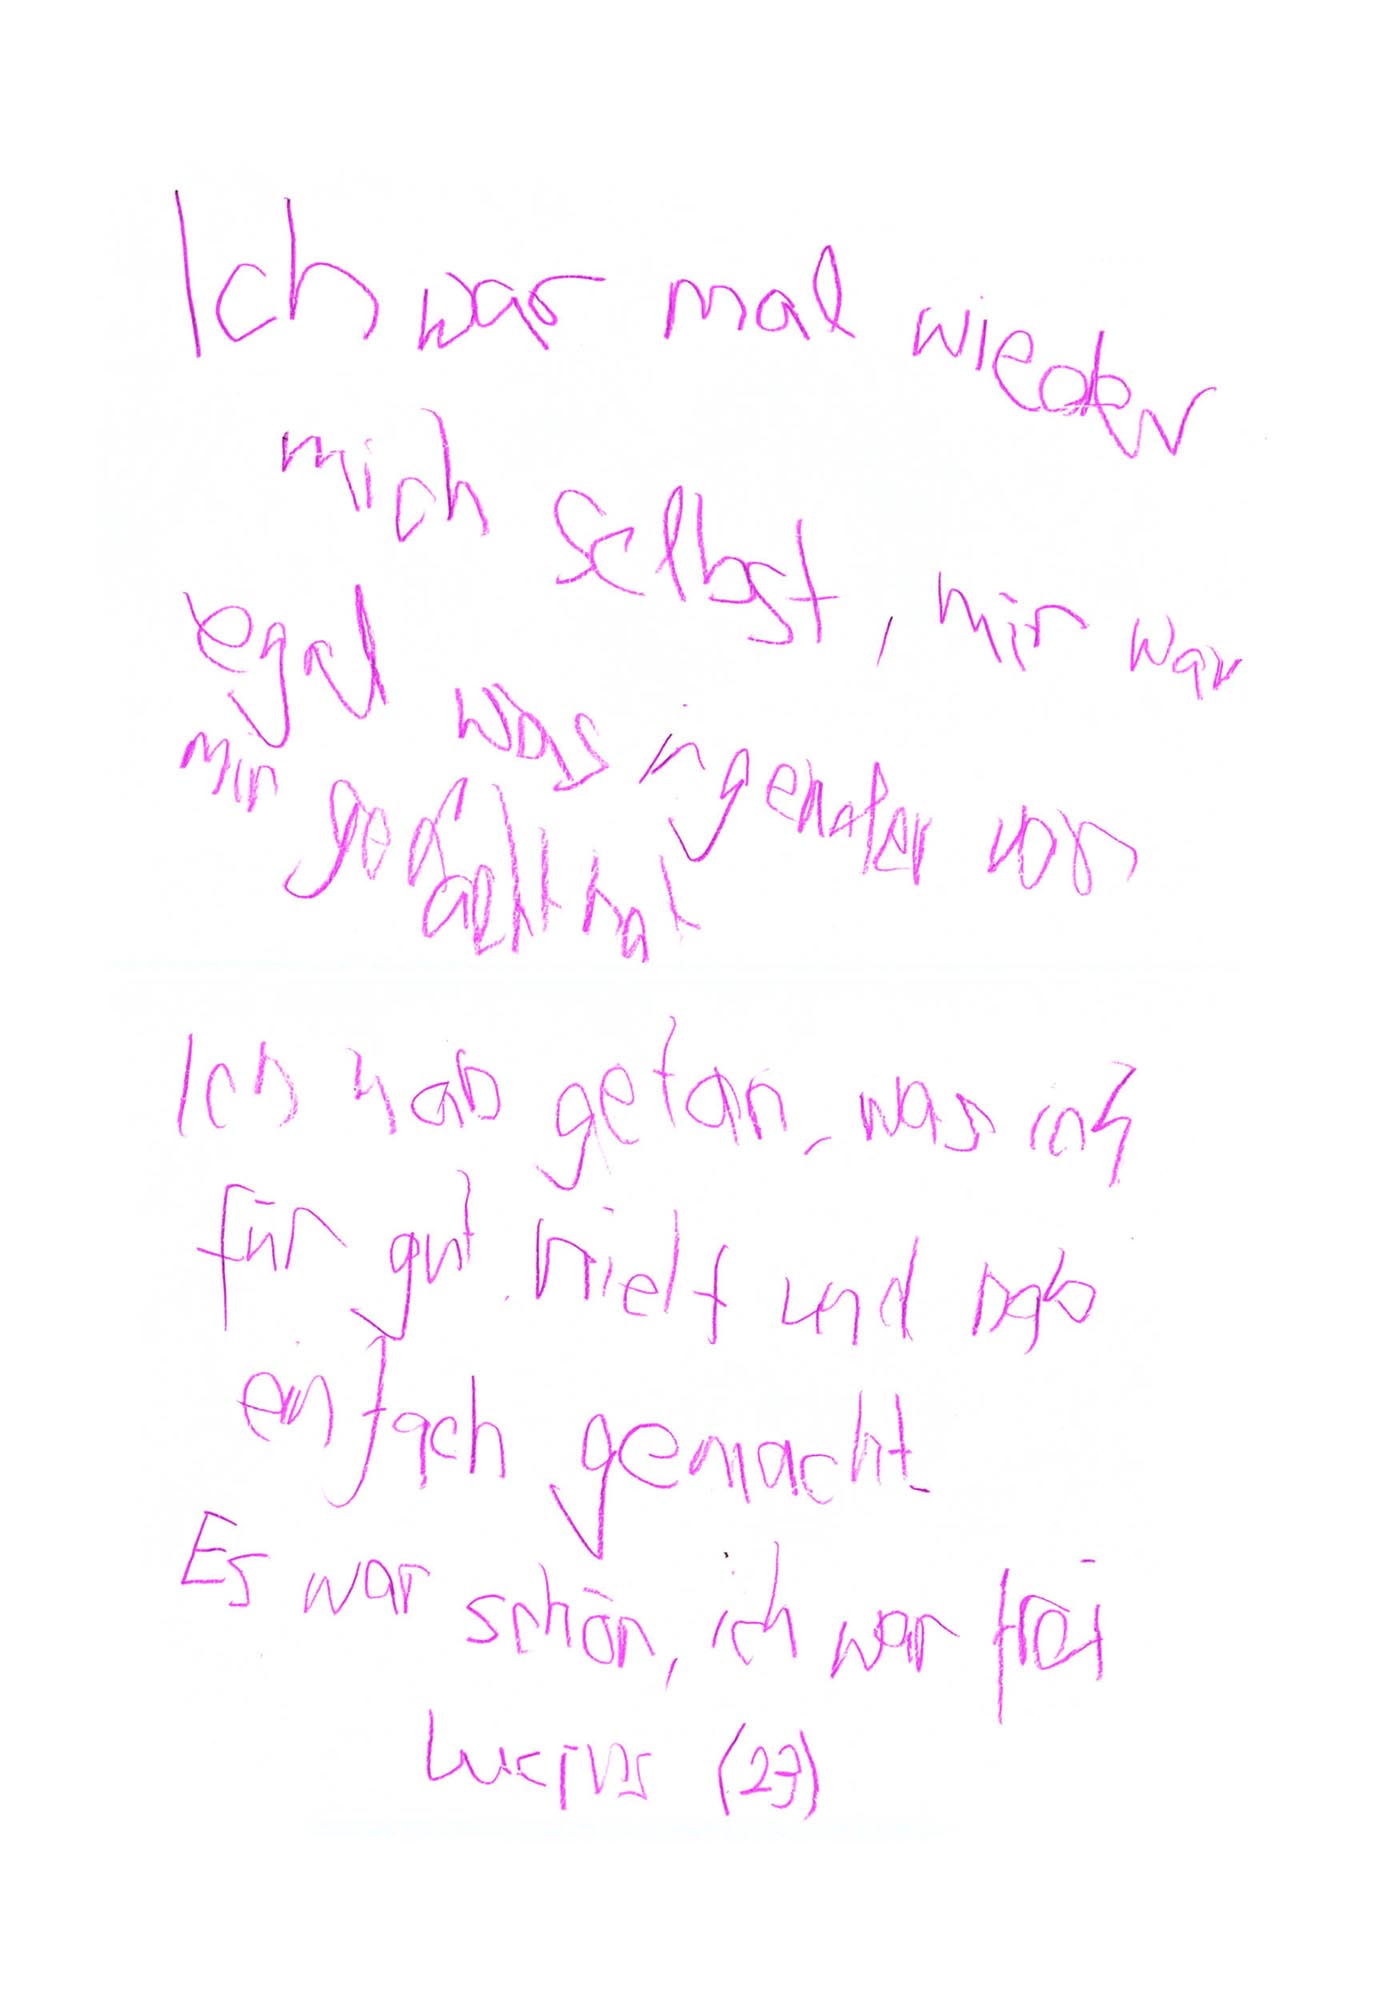 Ich war mal wieder
mich selbst, mir war
egal was von
mir gedacht hat
Ich hab getan, was ich
für gut hielt und hab
einfach gemacht.
Es war schön, ich war frei
Lucius (23)